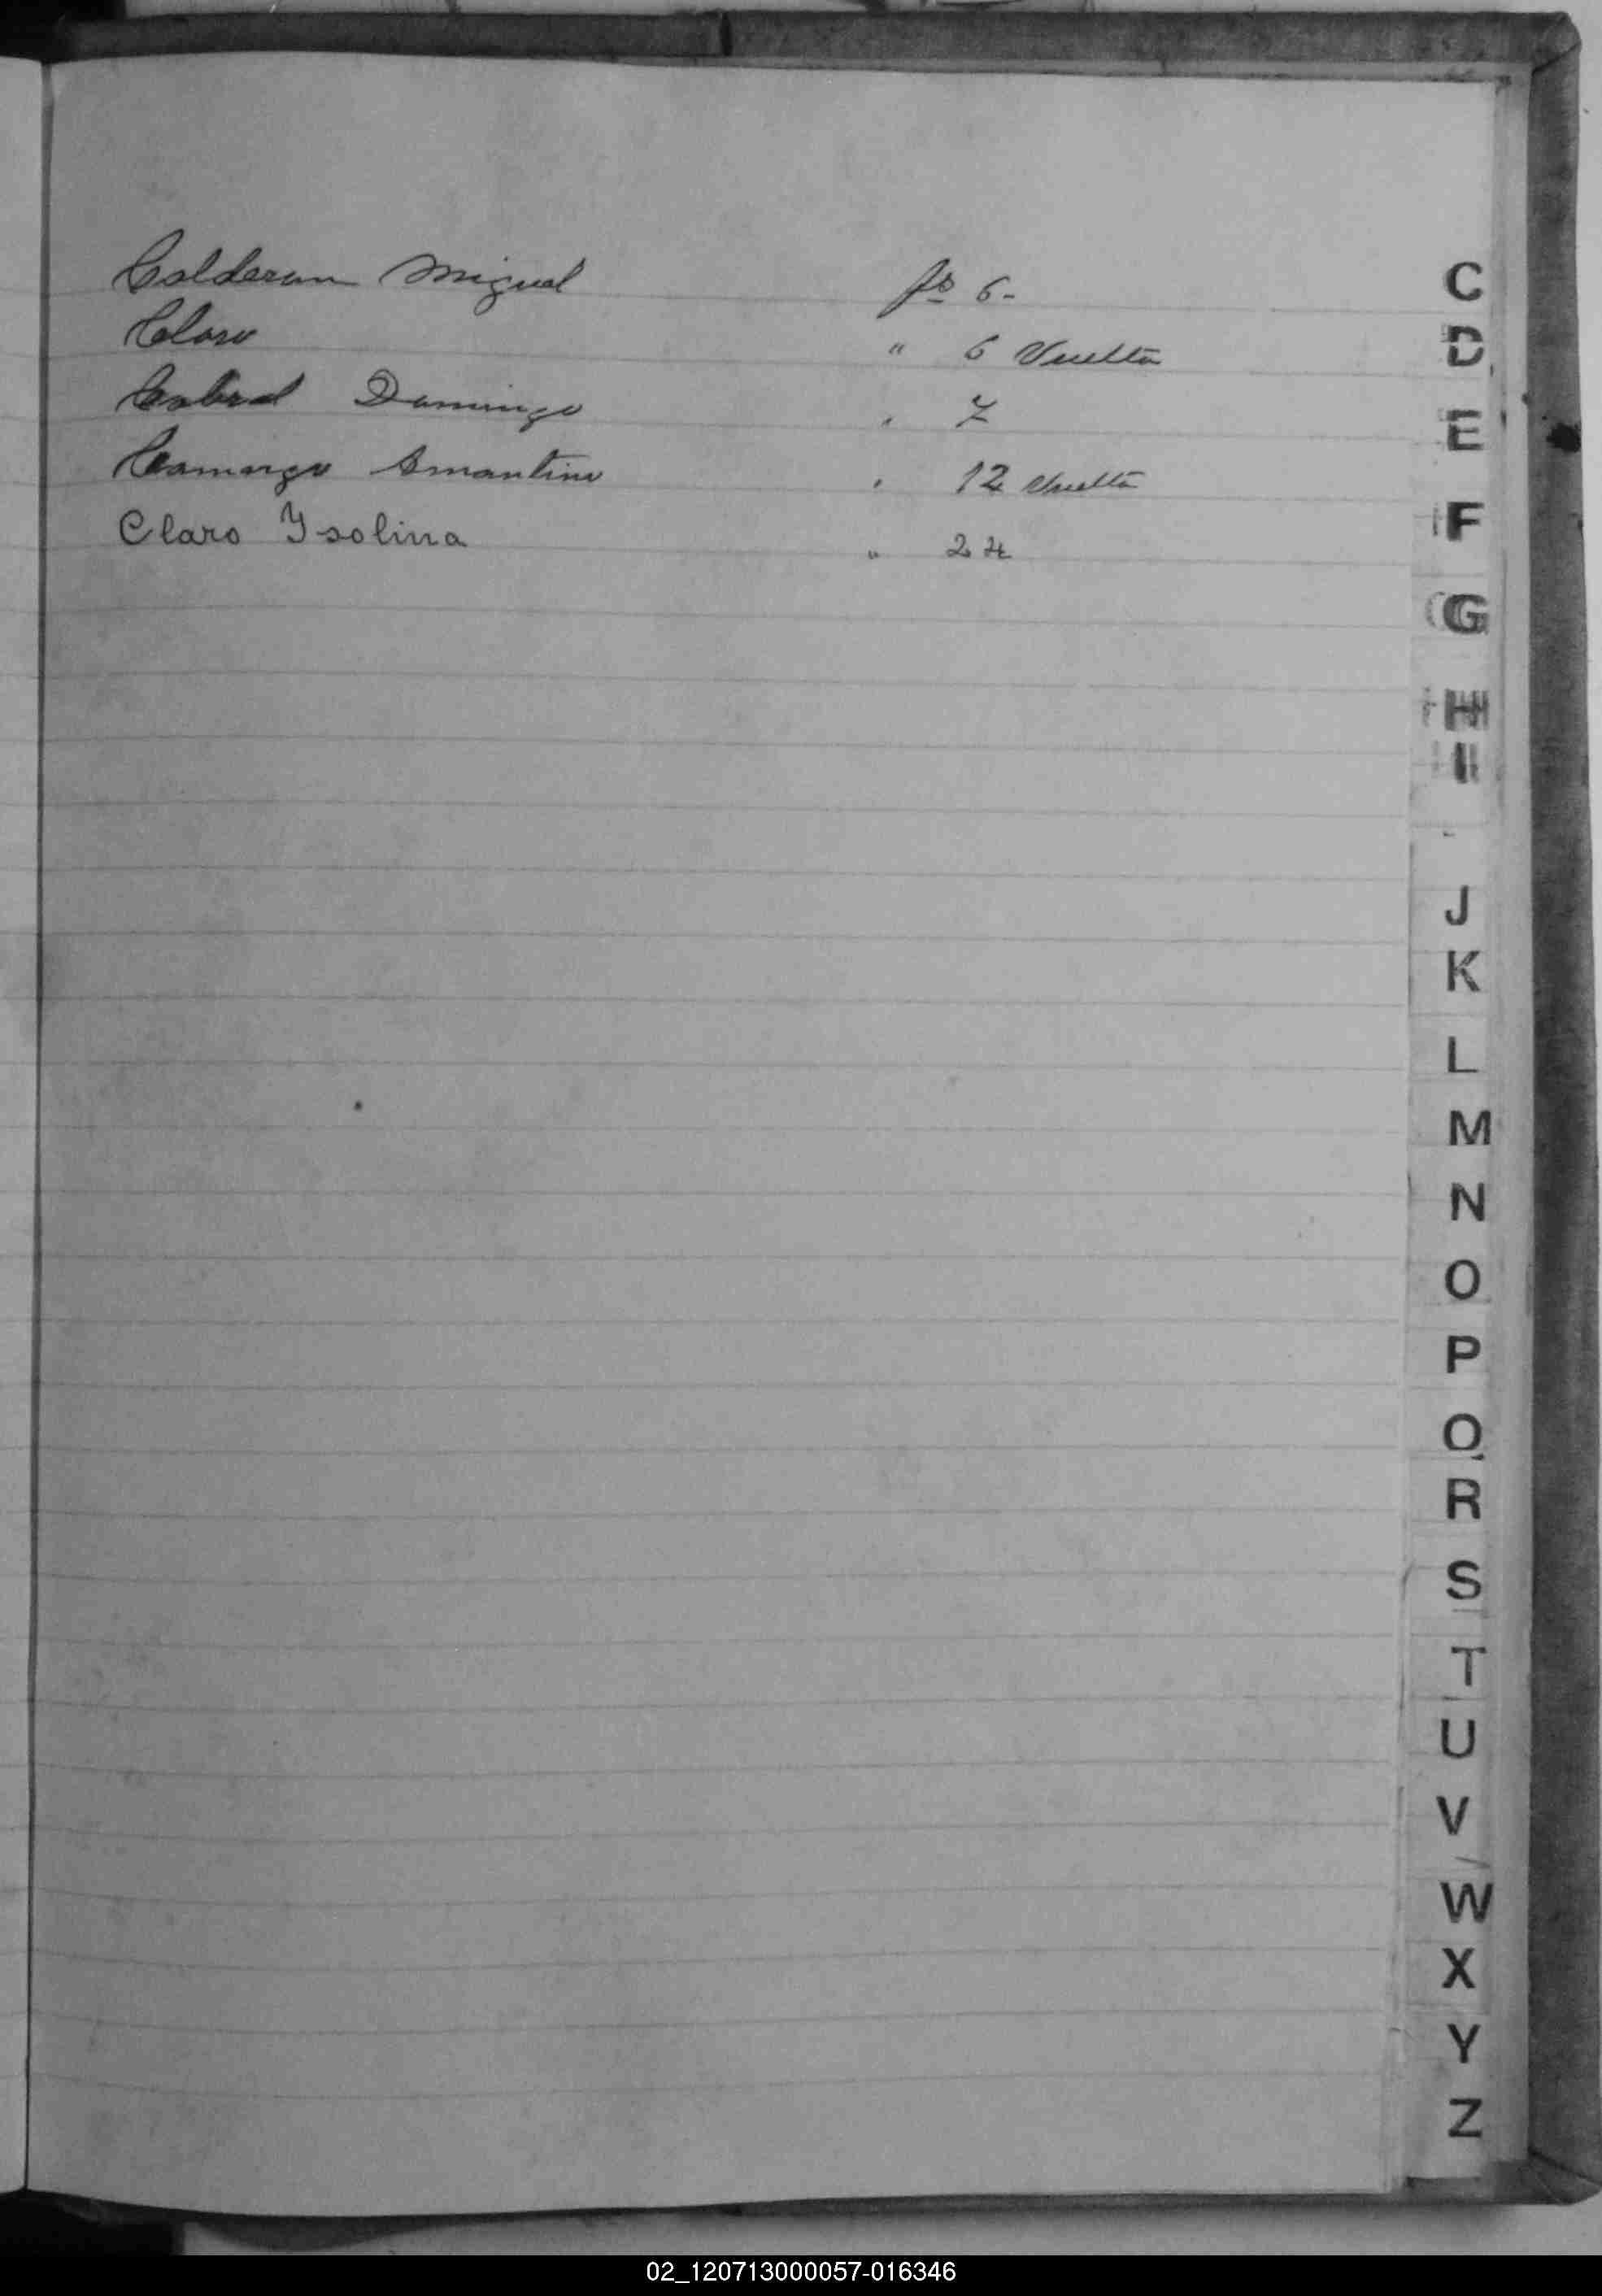 Calderon Miguel fo 6-
Claro " 6 Vuelta
Cabral Domingo " 7
Camargo Amantino " 12 Vuelta
Claro Ysolina " 24
C
D
E
F
G
H
I
J
K
L
M
N
O
P
Q
R
S
T
U
V
W
X
Y
Z
02_120713000057-016346